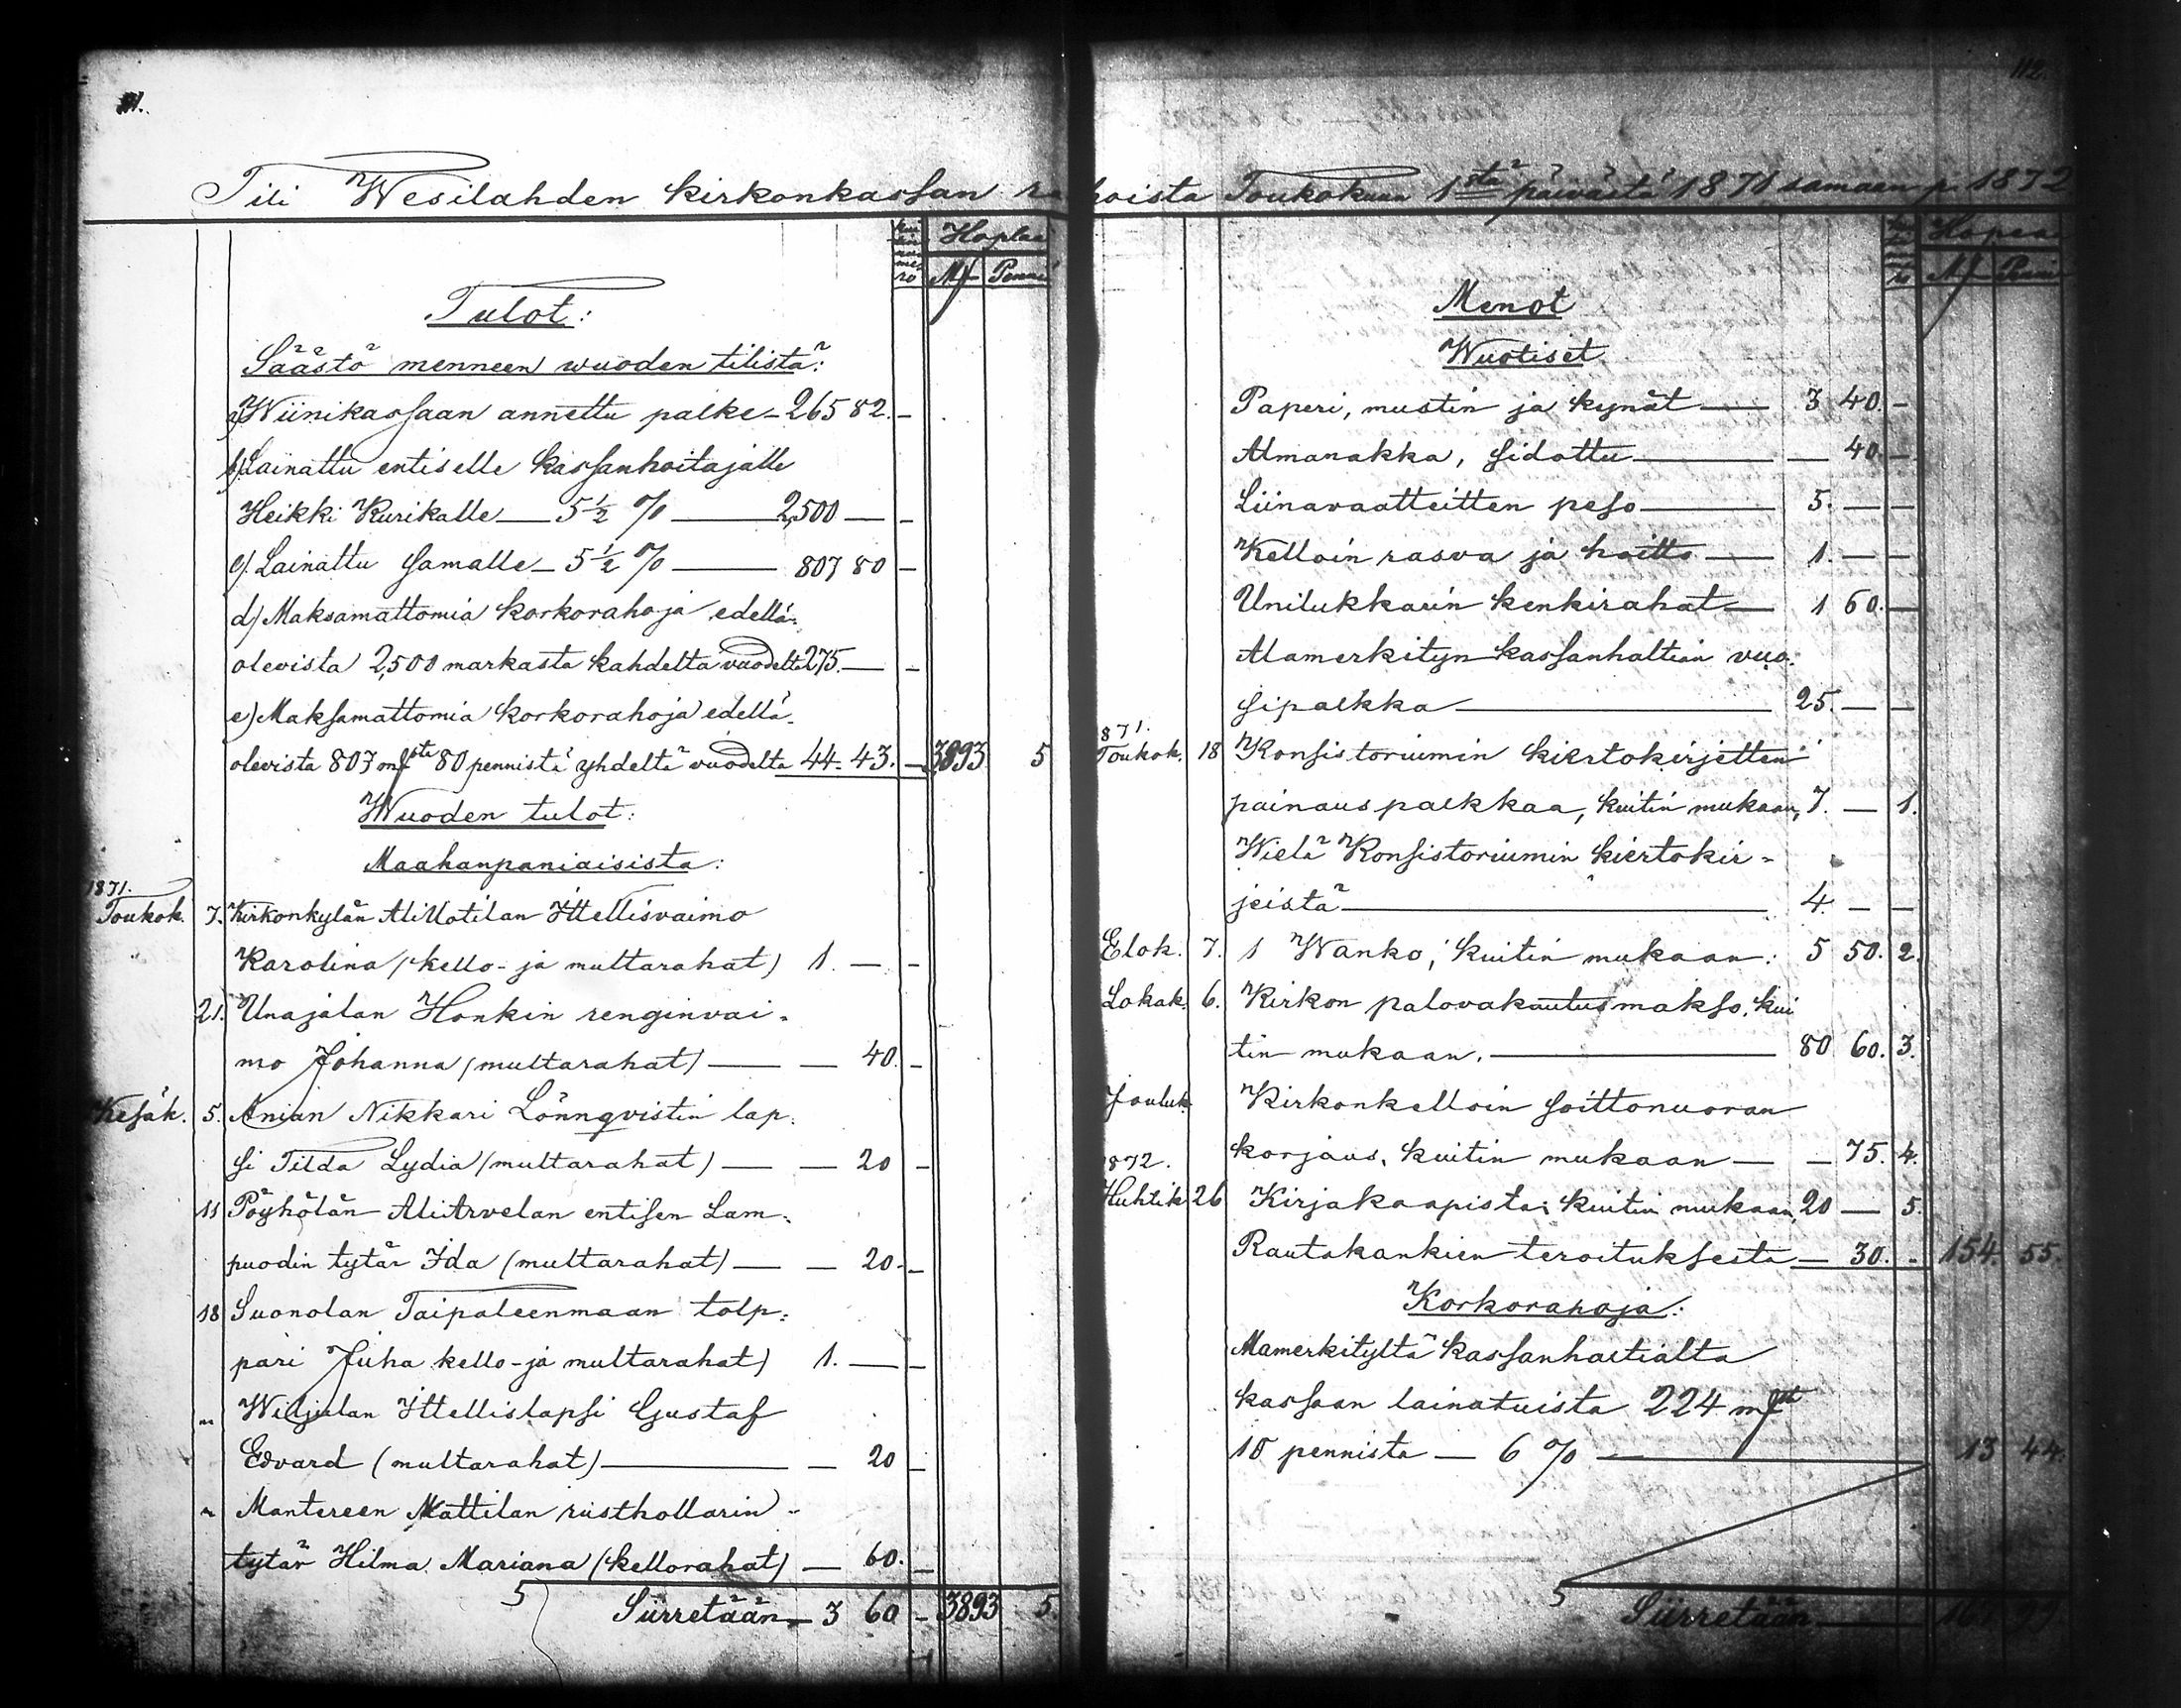 112.
Tili Wesilahden kirkonkassan rahoista Toukokuun 1stä päivästä 1871 samaan p. 1872
Hopiaa
Mf Penniä
Tulot:
Säästö menneen wuoden tilistä:
a) Wiinikassaan annettu palke – 265 82. –
b) Lainattu entiselle kassanhoitajalle
Heikki Kurikalle — 5½ % — 2,500 — –
c) Lainattu samalle – 5½ % — 807 80 –
d) Maksamattomia korkorahoja edellä-
olevista 2,500 markasta kahdelta vuodelta 275. — –
e) Maksamattomia korkorahoja edellä-
olevista 807 mfsta 80 pennistä yhdeltä vuodelta 44. 43. – 3893 5
Wuoden tulot:
Maahanpaniaisista:
1871.
Toukok. 7. Kirkonkylän AliUotilan Ittellisvaimo
Karolina (kello- ja multarahat) 1. — –
21. Unajalan Honkin renginvai-
mo Johanna (multarahat) — — 40. –
Kesäk. 5. Anian Nikkari Lönnqvistin lap-
si Tilda Lydia (multarahat) — — 20 –
11 Pöyhölän AliArvelan entisen Lam-
puodin tytär Ida (multarahat) — — 20. –
18 Suonolan Taipaleenmaan tolp-
pari Juha kello- ja multarahat) 1. — –
" Wiljalan Ittellislapsi Gustaf
Edvard (multarahat) — — 20 –
" Mantereen Mattilan rusthollarin
tytär Hilma Mariana (kellorahat) — 60. –
Siirretään – 3 60 – 3893 5.
Hopiaa
Mf Penniä
Menot
Wuotiset
Paperi, mustin ja kynät — 3 40. –
Almanakka, sidottu — — 40. –
Liinavaatteitten peso — 5. — –
Kelloin rasva ja hoitto — 1. — –
Unilukkarin kenkirahat — 1 60. –
Alamerkityn kassanhaltian vuo-
sipalkka — 25. — –
1871.
Toukok. 18 Konsistoriumin kiertokirjetten
painauspalkkaa, kuitin mukaan, 7. — 1.
Wielä Konsistoriumin kiertokir-
jeistä — 4. — –
Elok. 7. 1 Wanko, kuitin mukaan: 5 50. 2.
Lokak. 6. Kirkon palovakautusmakso, kui
tin mukaan. — 80 60. 3.
Jouluk. Kirkonkelloin soittonuoran
korjaus, kuitin mukaan — — 75. 4.
1872.
Huhtik 26 Kirjakaapista; kuitin mukaan, 20 — 5.
Rautakankien teroituksesta — 30. – 154. 55.
Korkorahoja:
Alamerkityltä kassanhaltialta
kassaan lainatuista 224 mfst
10 pennistä — 6 % — 13 44.
Siirretään — 167 99